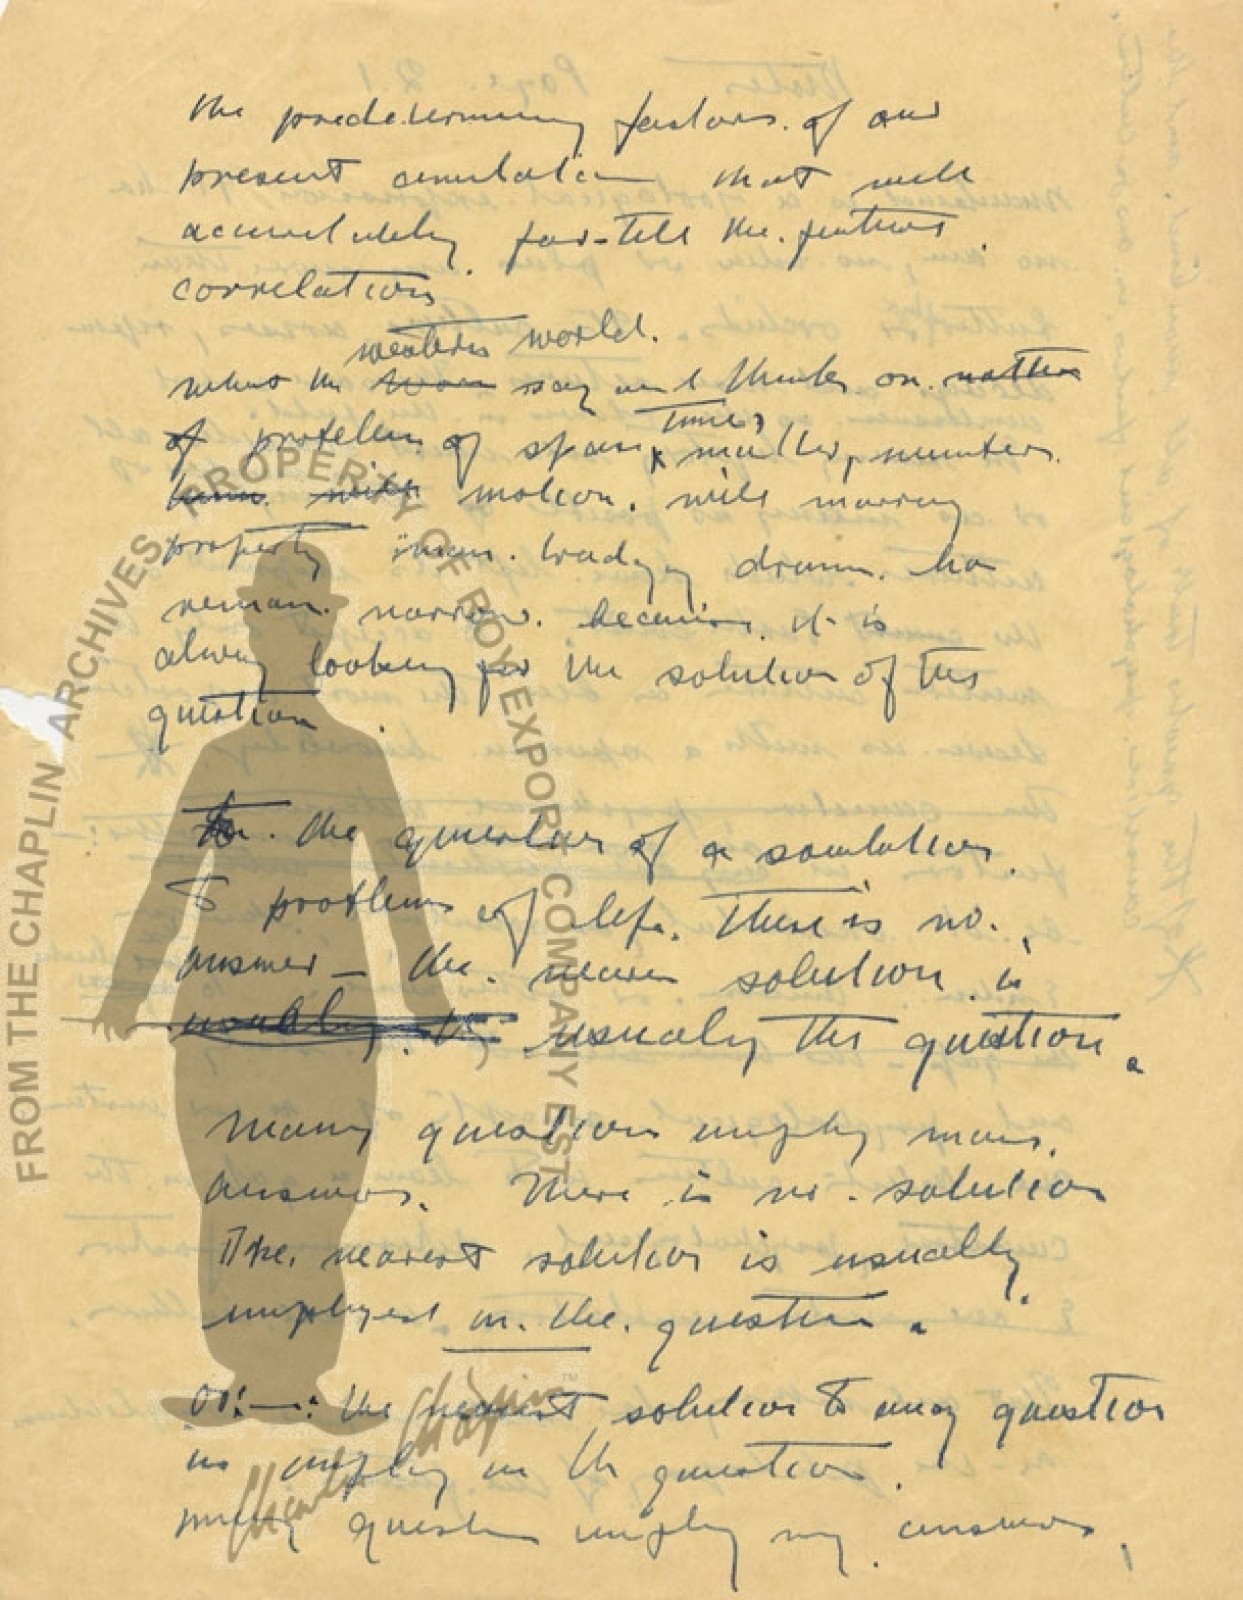 the predetermining factors of our
present that will
accurately for-tell the future
correlation
western world.
what the say and thinks on matter
of problem of space matter, numbers
times
motion. will marring
property man. drama. has
remain narrow. because it is
alway looking for the solution of the
question
the question of a
to problems of life. There is no.
answer – the. nearer solution is
usually usually the question.
many questions imply many
answers. There is no. solution
The. nearest solution is usually
in. the. question.
or:—: the nearest solution to any question
is imply in the question.
many question imply my answers,
FROM THE CHAPLIN ARCHIVES. PROPERTY OF ROY EXPORT COMPANY EST
Charles Chaplin